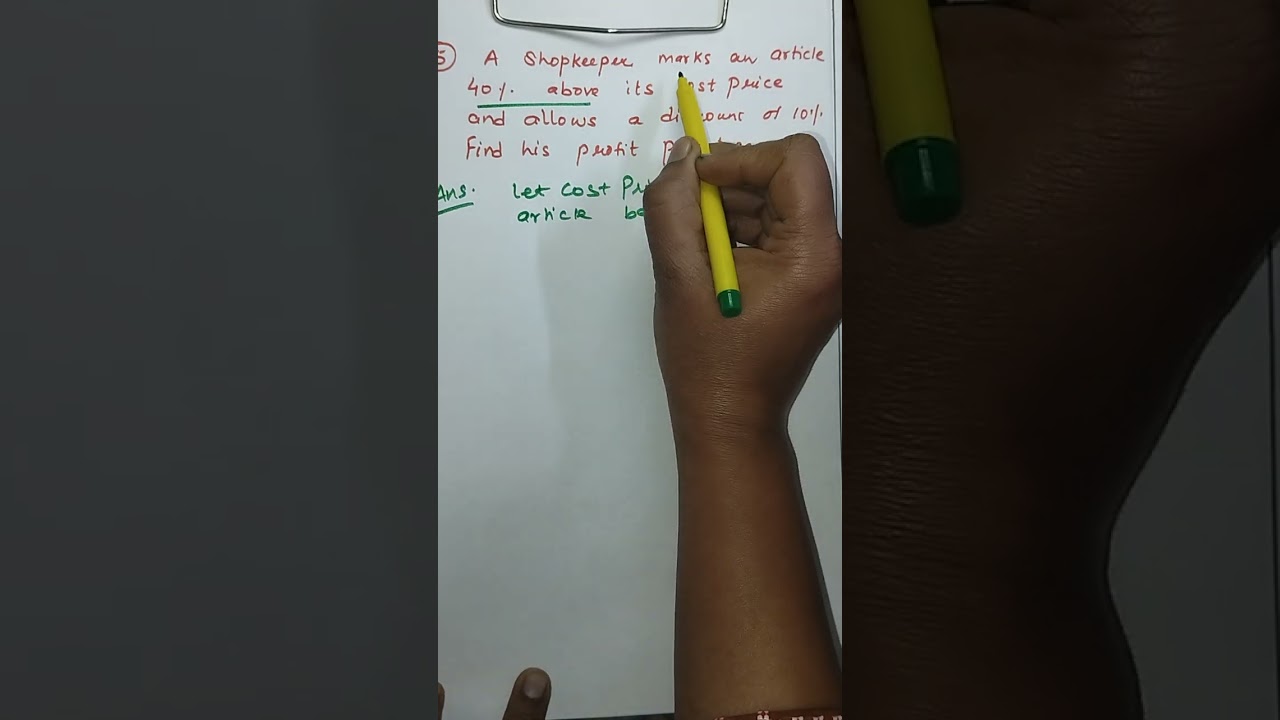 5) A Shopkeeper marks an article
40% above its cost price
and allows a discount of 10%.
Find his profit
Ans. Let cost
article